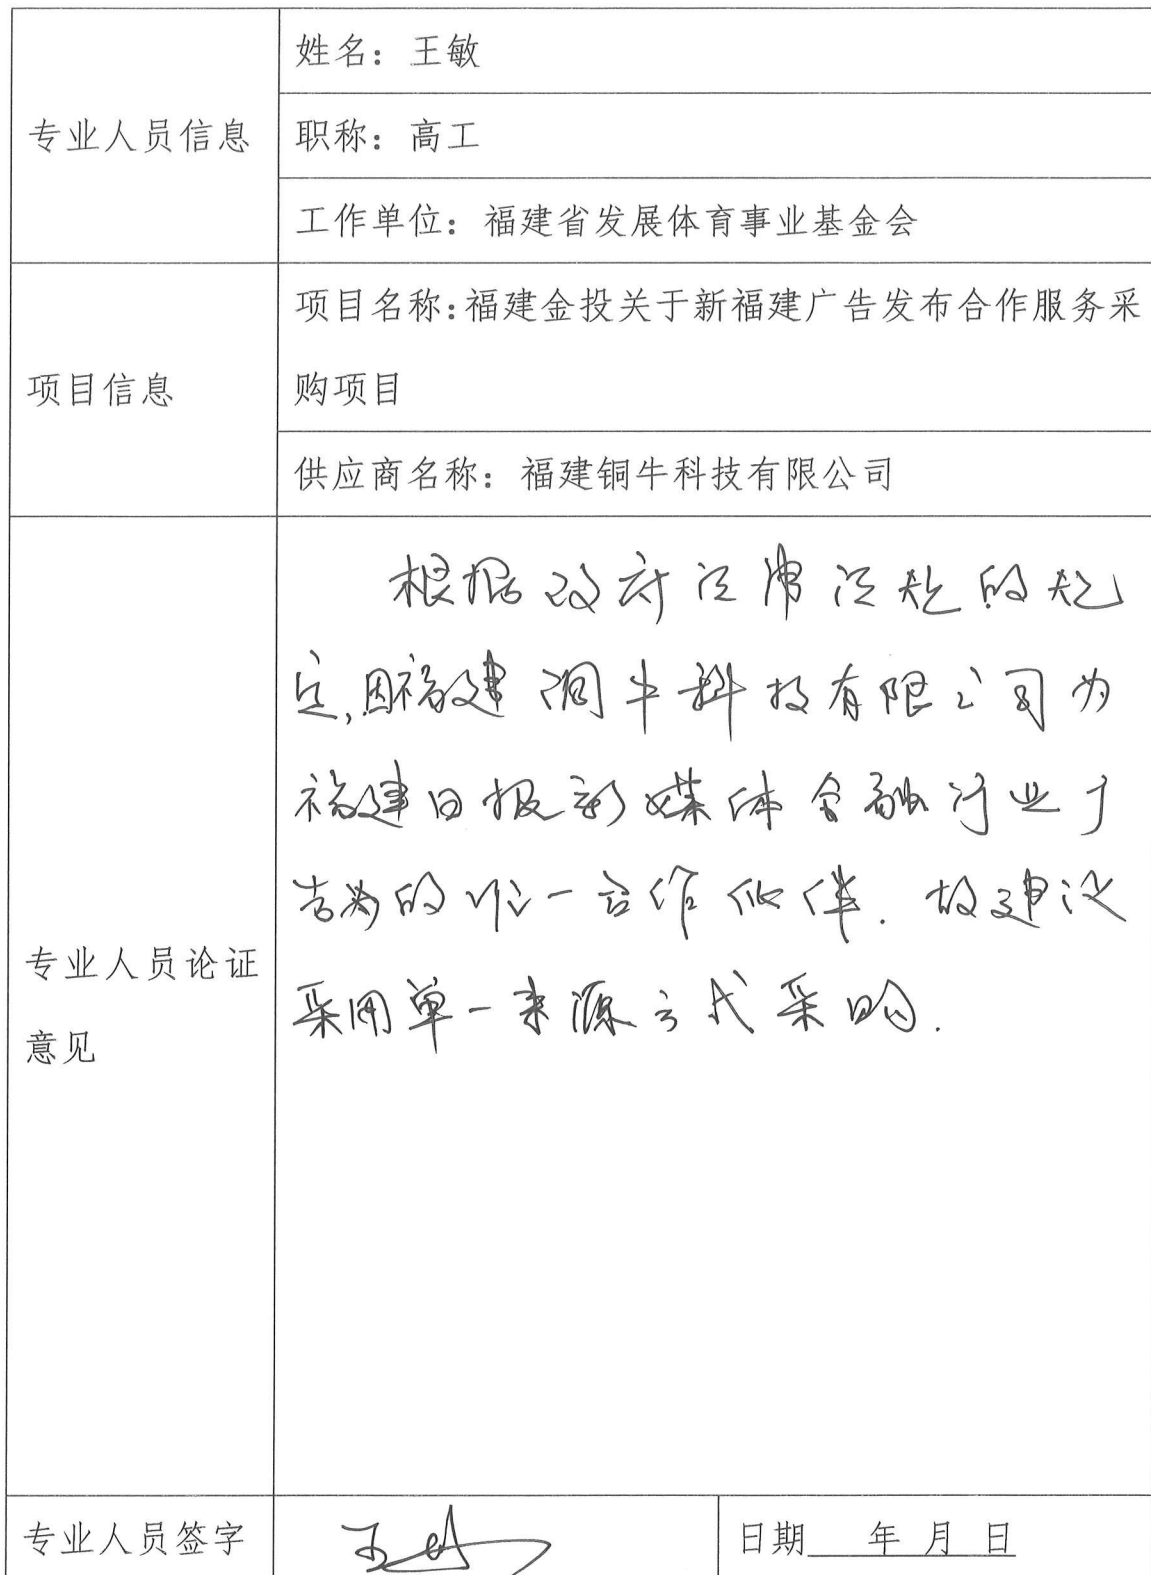 专业人员信息
姓名：王敏
职称：高工
工作单位：福建省发展体育事业基金会
项目信息
项目名称：福建金投关于新福建广告发布合作服务采
购项目
供应商名称：福建铜牛科技有限公司
专业人员论证
意见
根据政府法律法规的规
定,因福建铜牛科技有限公司为
福建日报新媒体金融行业广
告的唯一合作伙伴.故建议
采用单一来源方式采购.
专业人员签字
王敏
日期 年 月 日